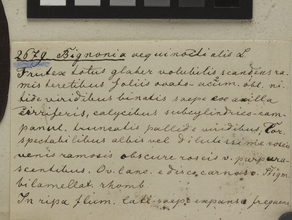 2679. Bignonia aequinoctialis L.
Frutex totus glaber volubilis scandens ra-
mis teretibus foliis ovato-acum. obt. ni-
tide viridibus binatis saepe ex axilla
cirriferis, calycibus subcylindrico-cam-
panul. truncatis pallide viridibus, Cor.
spectabilibus albis vel dilutissime roseis
venis ramosis obscure roseis v. purpura
scentibus. Ov. lanc. e disco carnoso. Stigm.
bilamellat. rhomb.
In ripa flum. saepe expansa frequens